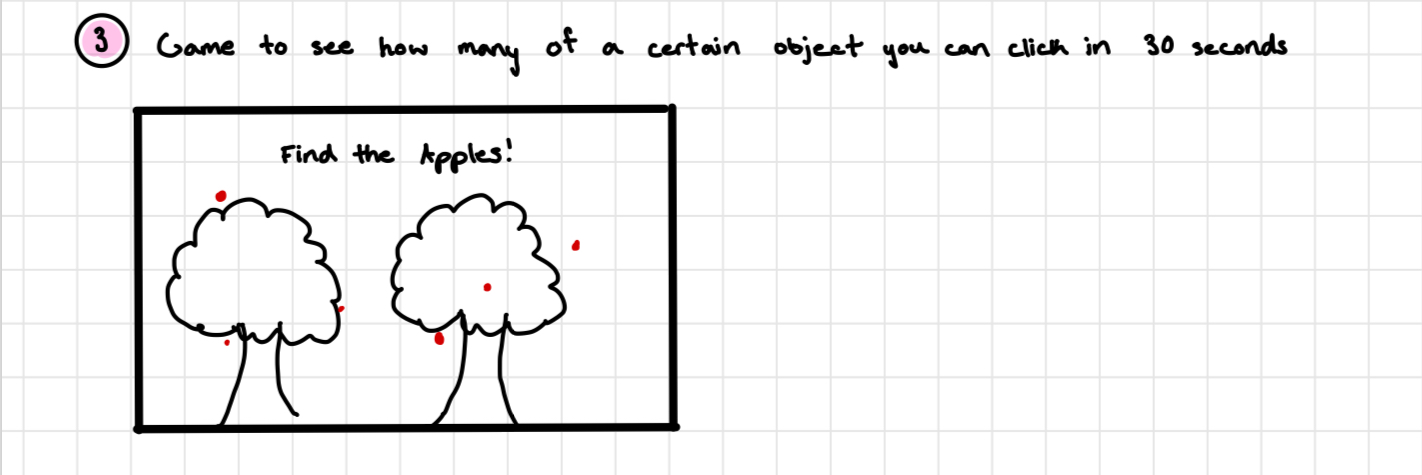 3 Game to see how many of a certain object you can click in 30 seconds
Find the Apples!